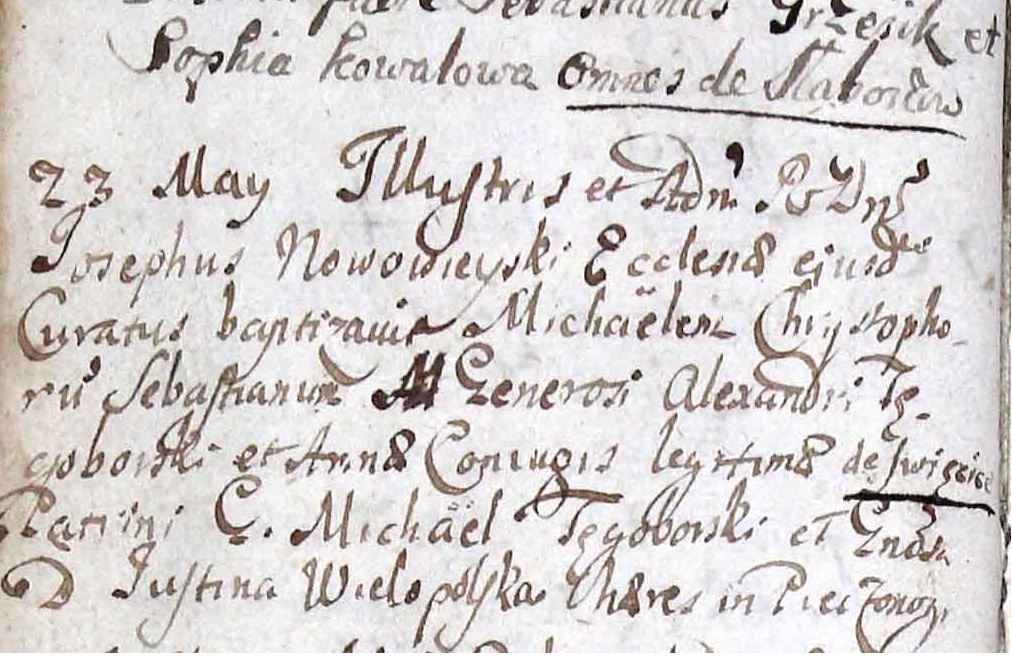 fuere Sebastianus Grzesik et
Sophia Kowalowa Omnes de Slaboszow
23 May Illustris et Adm. R Dns
Josephus Nowowieyski Ecclesiæ ejusde
Curatus baptizavit Michaëlem Chrystopho-
rū Sebastianum Generosi Alexandri Tę-
goborski et Annæ Coniugis legitimæ de Swięcice
Patrini G. Michaël Tęgoborski et Gnosa
D Justina Wielopolska Hæres in